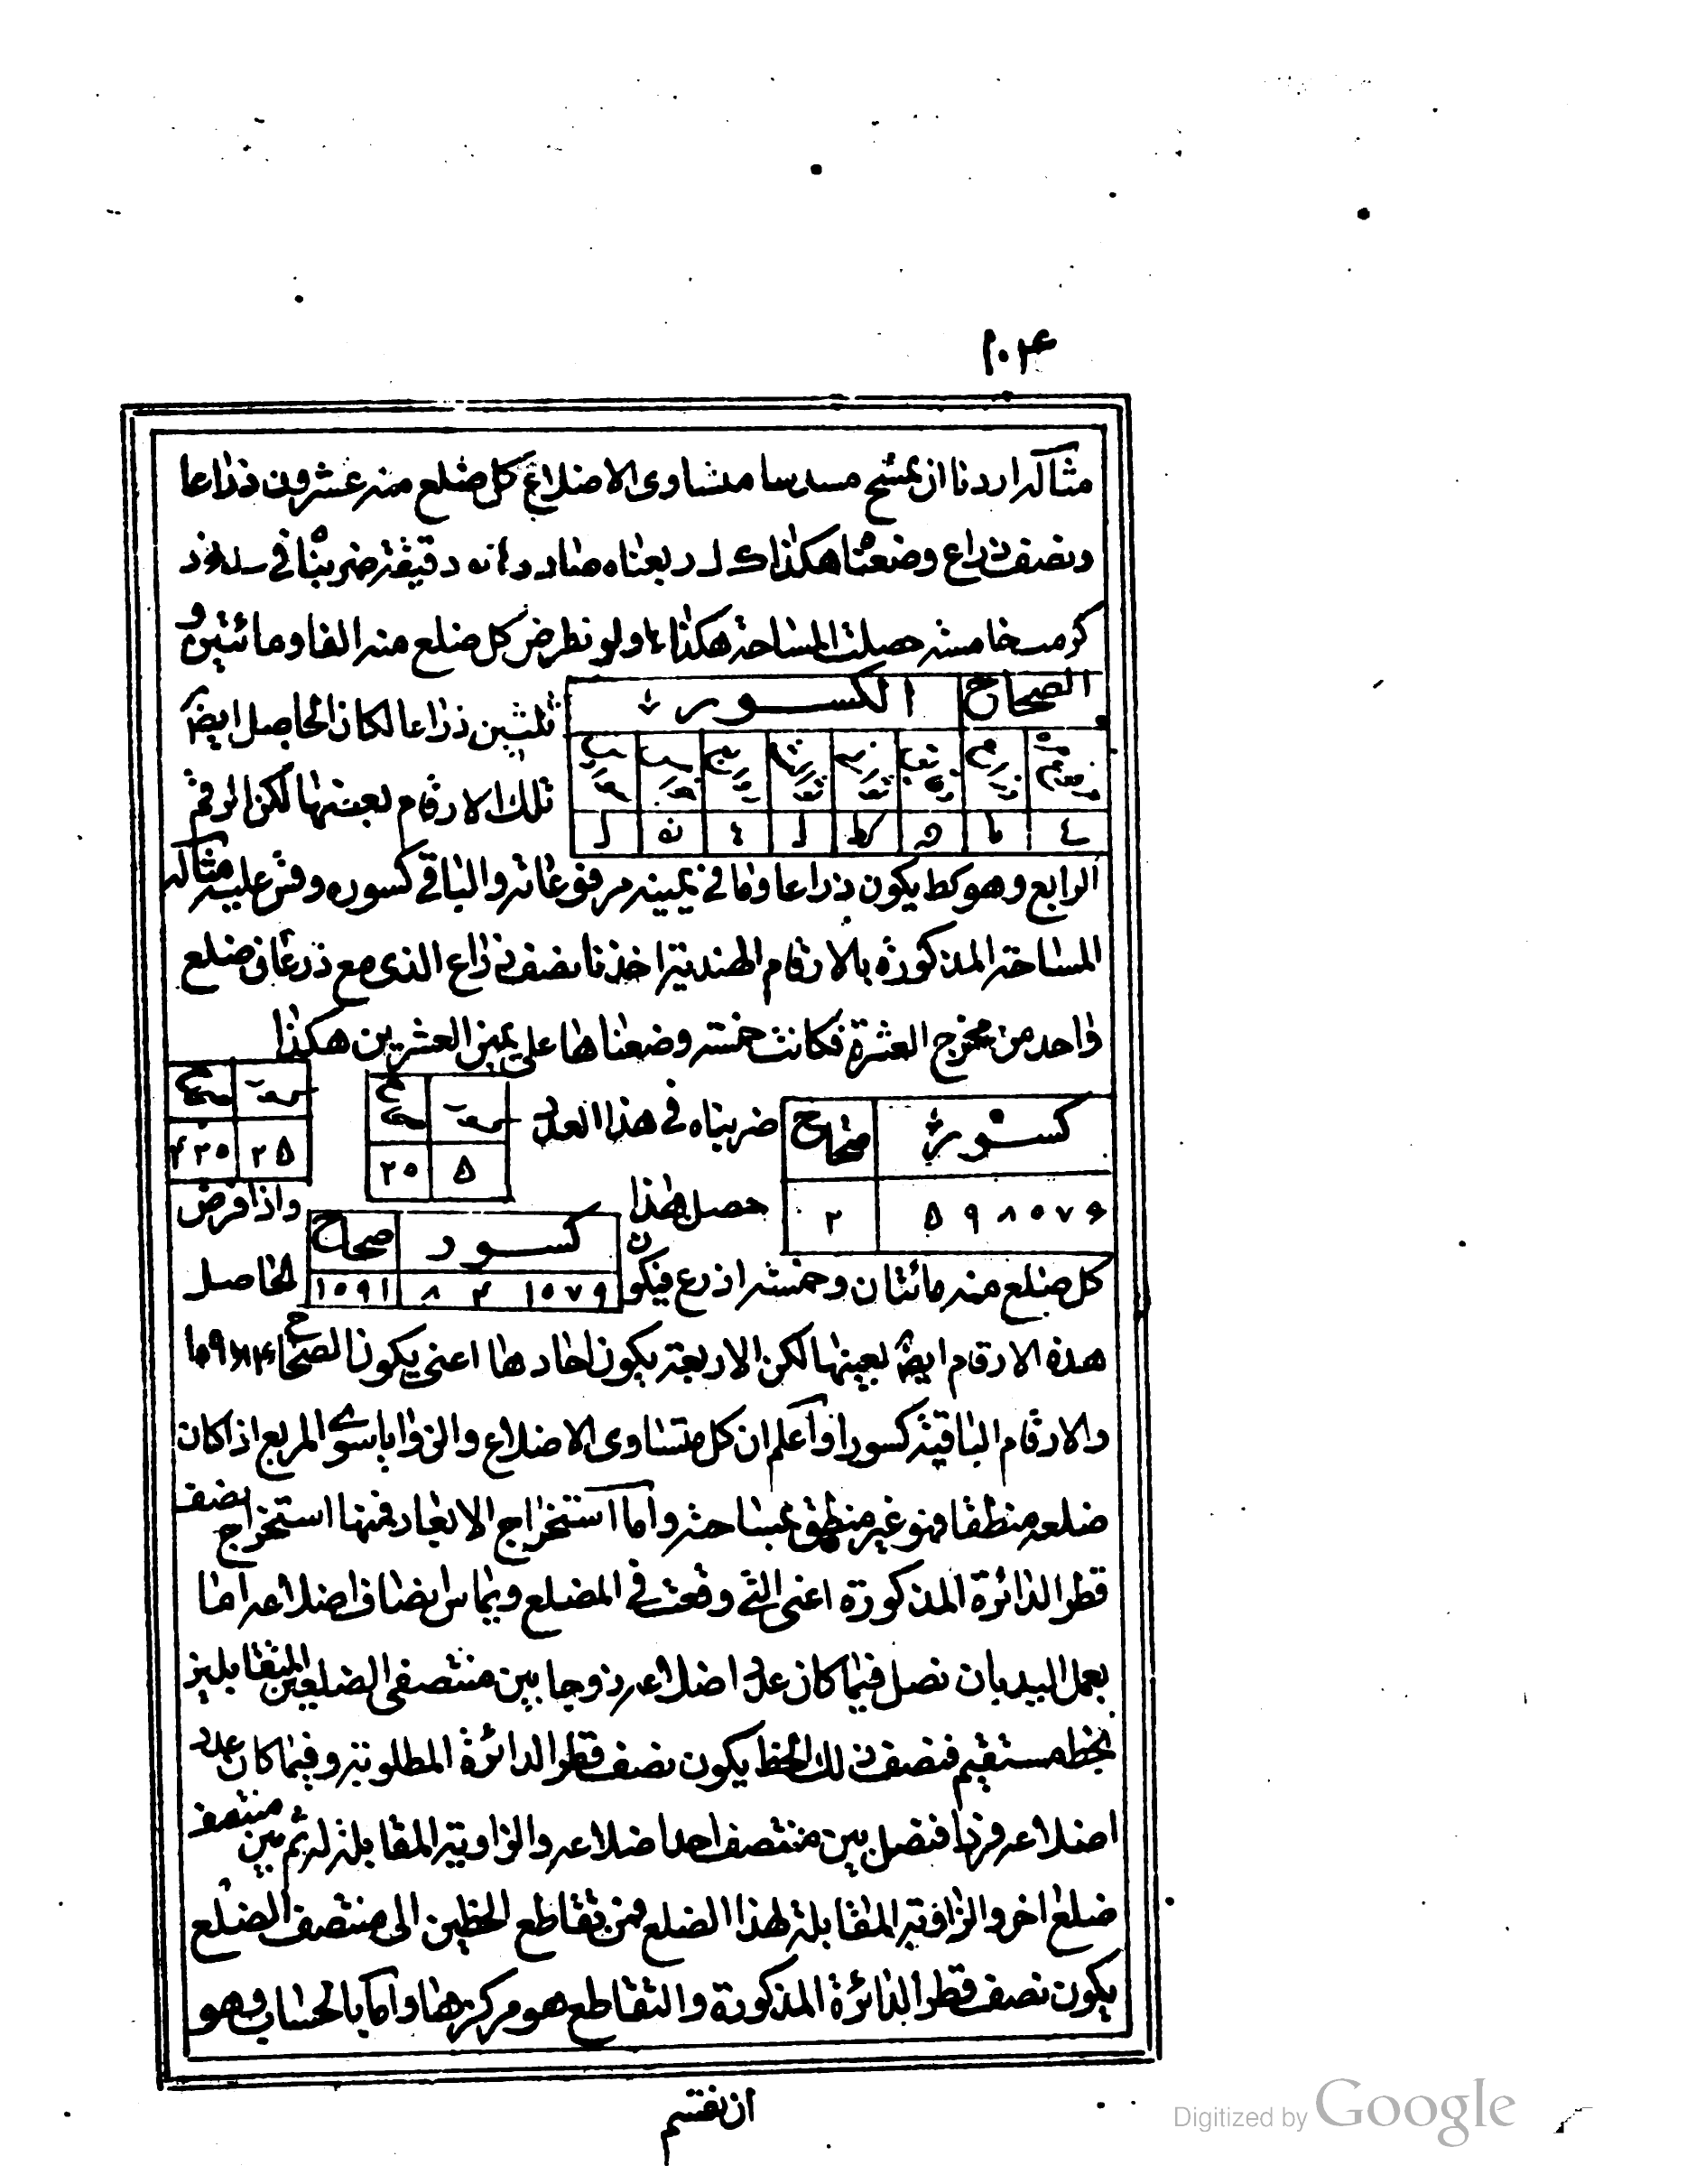 ١٠٤
مثاله اردنا ان نمسح مسدسا متساوى الاضلاع كل ضلع منه عشرون ذراعا
ونصف ذراع وضعنا هكذا ك ل ربعناه صار دقيقة ضربنا فى
خامسة حصلت المساحة هكذا ولو نفرض كل ضلع منه الفا ومائتين و
الصحاح الكسور
ثلثين ذراعا لكان الحاصل ايضا
تلك الارقام بعينها لكن الرقم
كط ل نه ل
الرابع وهو كط يكون ذراعا وما فى يمينه مرفوعاته والباقى كسوره وقس عليه مثاله
المساحة المذكورة بالارقام الهندية اخذنا نصف ذراع الذى مع ذرعان ضلع
واحد من مخرج العشرة فكانت خمسة وضعناها على يمين العشرين هكذا
صحاح كسور
٢٠ ٥
ضربناه فى هذا العدد
صحاح كسور
٢ ٥٩٨٠٧٦
حصل هذا
صحاح كسور
٤٢٠ ٢٥
واذا فرض
كل ضلع منه مائتان وخمسة اذرع فيكون
صحاح كسور
١٠٩١ ٨ ٤ ١٥٧٩
الحاصل
هذه الارقام ايضا بعينها لكن الاربعة يكون احادها اعنى يكون الصحاح ١٠٩١٨٤
والارقام الباقية كسورا واعلم ان كل متساوى الاضلاع والزوايا سوى المربع اذا كان
ضلعه منطقا فهو غير منطق بمساحته واما استخراج الابعاد فمنها استخراج نصف
قطر الدائرة المذكورة اعنى التى وقعت فى المضلع ويماس انصاف اضلاعه اما
بعمل اليد بان نصل فيما كان عدد اضلاعه زوجا بين منتصفى الضلعين المتقابلين
بخط مستقيم فنصف ذلك الخط يكون نصف قطر الدائرة المطلوبة وفيما كان عدد
اضلاعه فردا فنصل بين منتصف احد اضلاعه والزاوية المقابلة له ثم بين منتصف
ضلع اخر والزاوية المقابلة لهذا الضلع فمن تقاطع الخطين الى منتصف الضلع
يكون نصف قطر الدائرة المذكورة والتقاطع هو مركزها واما بالحساب فهو
ان نقسم
Digitized by Google